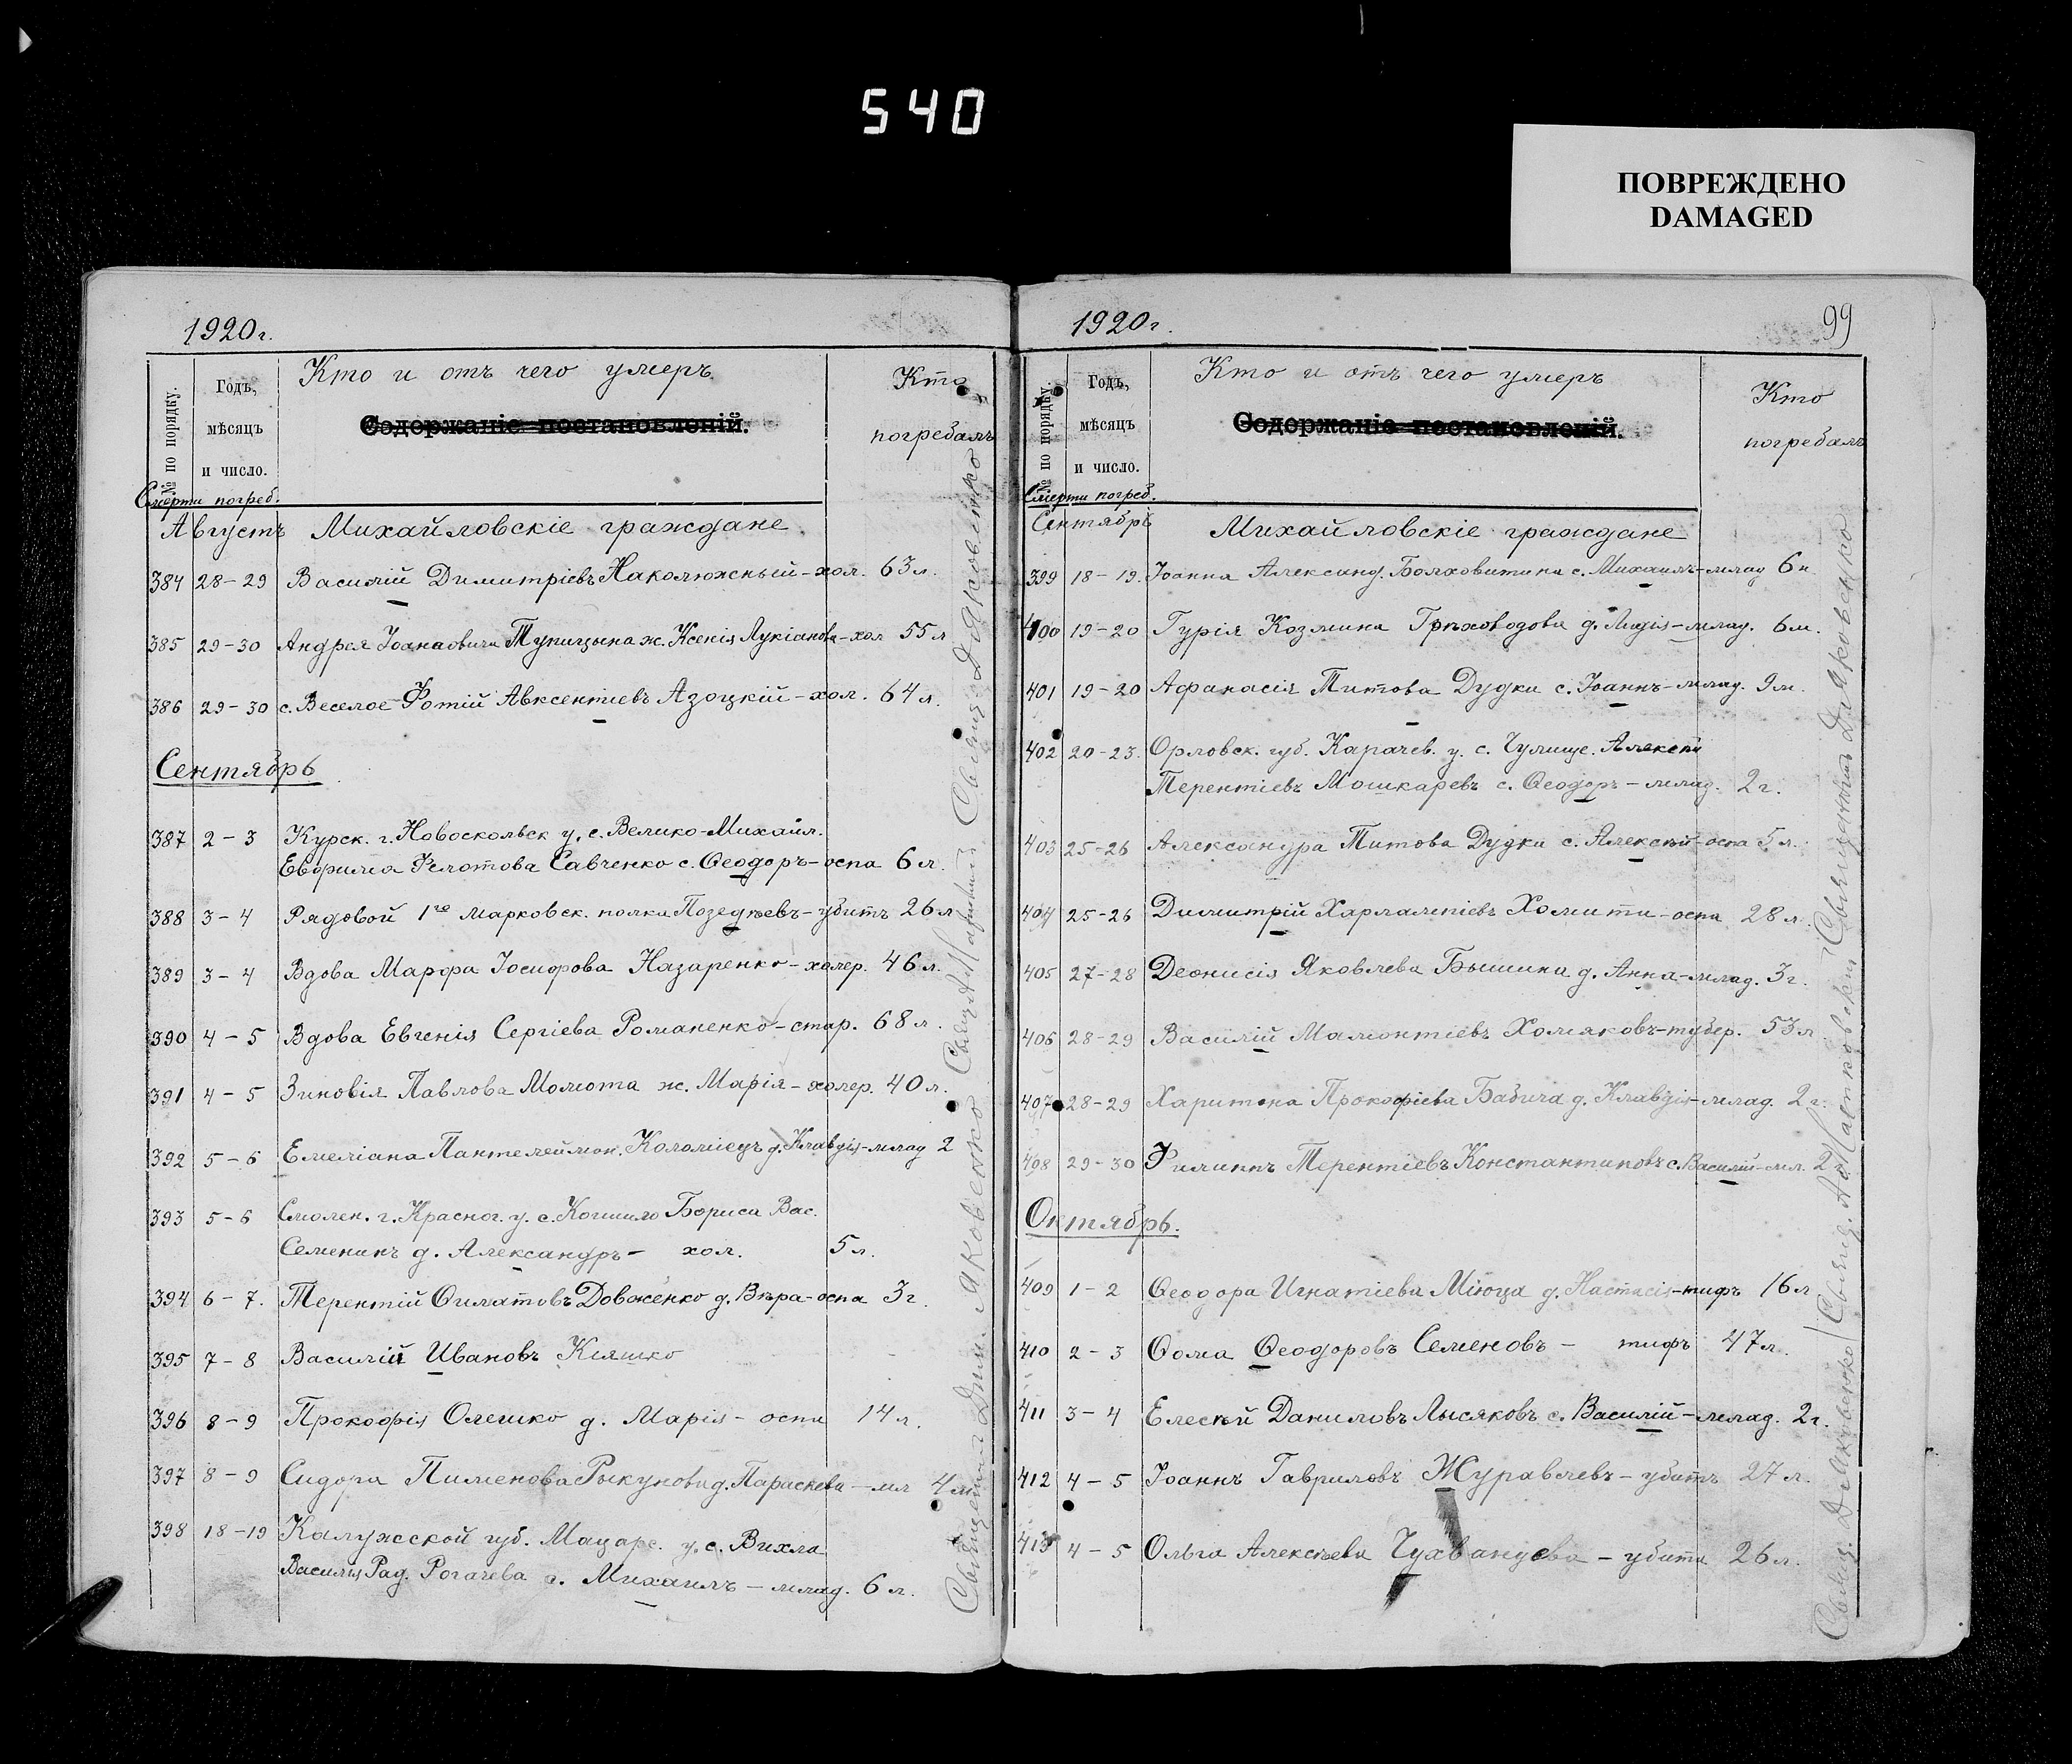 540
ПОВРЕЖДЕНО
DAMAGED
1920г.
№ по порядку.
Годъ,
мѣсяцъ
и число.
Смерти погреб.
Кто и отъ чего умеръ
Содержаніе постановленій.
Кто
погребалъ
Августъ Михайловскіе граждане
384 28-29 Василій Димитріевъ Наколюжный-хол. 63л.
385 29-30 Андрея Іоанновича Тупицына ж. Ксенія Лукіанова-хол 55л
386 29-30 с. Веселое Фотій Авксентіевъ Азоцкій-хол. 64л.
Сентябрь
387 2-3 Курск. г. Новоскольск у. с. Велико-Михайл.
Евфима Филотова Савченко с. Ѳеодоръ-оспа 6л.
388 3-4 Рядовой 1го Марковск. полка Позеднѣевъ-убитъ 26л
389 3-4 Вдова Марфа Іосифова Назаренко-холер. 46л.
390 4-5 Вдова Евгенія Сергіева Романенко-стар. 68л.
391 4-5 Зиновія Павлова Момота ж. Марія-холер. 40л.
392 5-6 Емеліана Пантелеймон. Коломіецъ д. Клавдія-млад 2
393 5-6 Смолен. г. Красног. у. с. Бориса Вас.
Семенинъ д. Александръ- хол. 5л.
394 6-7. Терентій Филатовъ Довженко д. Вѣра-оспа 3г.
395 7-8 Василій Ивановъ Кіяшко
396 8-9 Прокофія Олешко д. Марія- оспа 14л.
397 8-9 Сидора Пименова Рыкунова д. Параскева-мл 4м
398 18-19 Калужской губ. у. с. Вихла
Василія Рад. Рогачева с. Михаилъ-млад. 6л.
Священникъ Дим. Яковенко
Свящ. А. Свящ. Д. Яковенко
1920г.
99
№ по порядку.
Годъ,
мѣсяцъ
и число.
Смерти погреб.
Кто и отъ чего умеръ
Содержаніе постановленій.
Кто
погребалъ
Сентябрь Михайловскіе граждане
399 18-19. Іоанна Александ. Болховитина с. Михаилъ-млад 6н
400 19-20 Гурія Козмина Грѣховодова д. Лидія-млад. 6м.
401 19-20 Афанасія Титова Дудки с. Іоаннъ-млад. 9м.
402 20-23. Орловск. губ. Карачев. у. с. Чулище. Алексѣй
Терентіевъ Мошкаревъ с. Ѳеодоръ-млад. 2г.
403 25-26 Александра Титова Дудки с. Алексѣй-оспа 5л.
404 25-26 Димитрій Харлампіевъ Хомити-оспа 28л.
405 27-28 Деонисія Яковлева Бышина д. Анна-млад. 3г.
406 28-29 Василій Мамонтіевъ Хомяковъ-тубер. 53л.
407 28-29 Харитона Прокофіева Бабича д. Клавдія-млад. 2г.
408 29-30 Филиппъ Терентіевъ Константиновъ с. Василій-мл. 2
Октябрь.
409 1-2 Ѳеодора Игнатіева Міюца д. Настасія-тифъ 16л
410 2-3 Ѳома Ѳеодоровъ Семеновъ- тифъ 47л.
411 3-4 Елесѣй Даниловъ Лысяковъ с. Василій-млад. 2г.
412 4-5 Іоаннъ Гавриловъ Журавлевъ-убитъ 27л.
413 4-5 Ольга Алексѣева Чухванцева-убита 26л.
Свящ. Д. Яковенко
Свящ. А. Священникъ Д. Яковенко